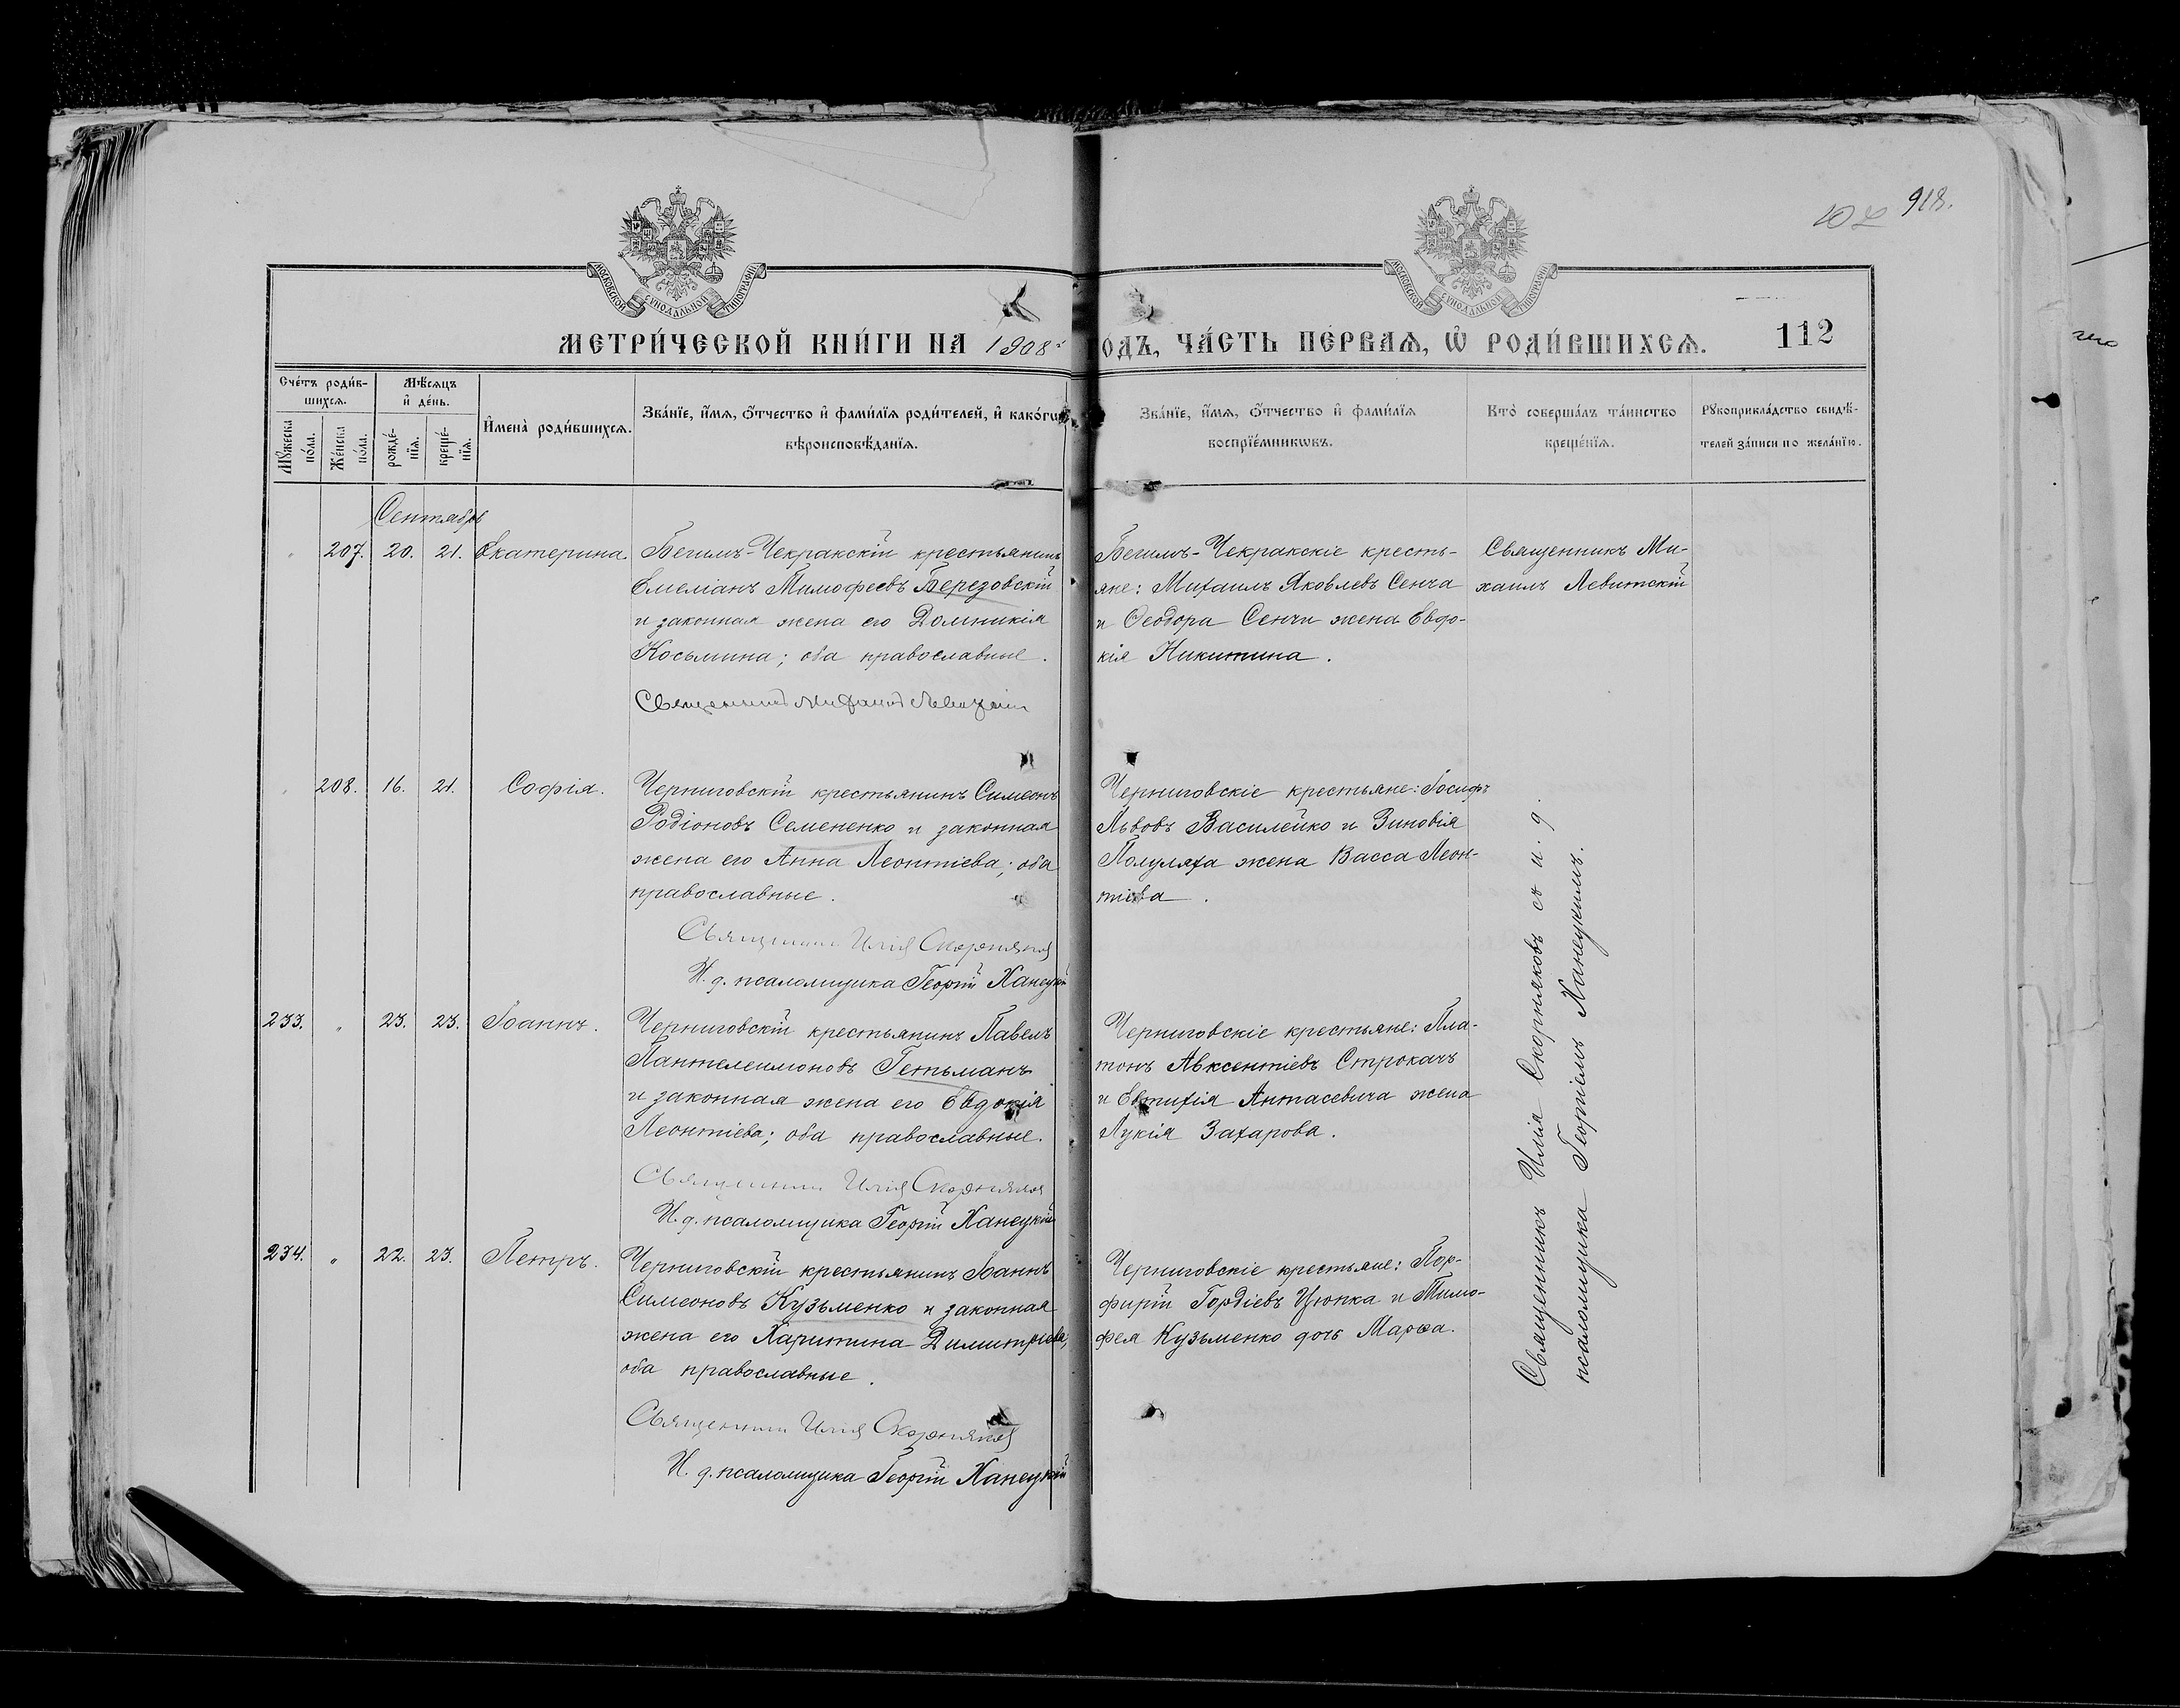 918.
МОСКОВСКОЙ СѴНОДАЛЬНОЙ ТИПОГРАФІИ
МОСКОВСКОЙ СѴНОДАЛЬНОЙ ТИПОГРАФІИ
МЕТРИ́ЧЕСКОЙ КНИ́ГИ НА 1908 ОДЪ, ЧА́СТЬ ПЕ́РВАѦ, Ѡ҆ РОДИ́ВШИХСѦ. 112
Сче́тъ роди́в-
шихсѧ.
Мꙋ́жеска по́ла.
Же́нска по́ла.
Мѣ́сѧцъ
и҆ де́нь.
рожде́-нїѧ.
креще́-нїѧ.
И҆мена̀ роди́вшихсѧ.
Зва́нїе, и҆́мѧ, ѻ҆́тчество и҆ фами́лїѧ роди́телей, и҆ како́гѡ
вѣроисповѣ́данїѧ.
Зва́нїе, и҆́мѧ, ѻ҆́тчество и҆ фами́лїѧ
воспрїе́мникѡвъ.
Кто̀ соверша́лъ та́инство
креще́нїѧ.
Рꙋкоприкла́дство свидѣ́-
телей за́писи по жела́нїю.
Сентябрь
207. 20. 21. Екатерина.
Бегимъ-Чекракскій крестьянинъ
Емеліанъ Тимофеевъ Березовскій
и законная жена его Домникія
Косьмина; оба православные.
Священникъ Михаилъ Левитскій
Бегимъ-Чекракскіе кресть-
яне: Михаилъ Яковлевъ Сенча
и Ѳеодора Сенчи жена Евдо-
кія Никитина.
Священникъ Ми-
хаилъ Левитскій
208. 16. 21. Софія.
Черниговскій крестьянинъ Симеонъ
Родіоновъ Семененко и законная
жена его Анна Леонтіева; оба
православные.
Священникъ Илія Скорняковъ
И. д. псаломщика Георгій Ханецкій
Черниговскіе крестьяне: Іосифъ
Львовъ Василейко и Зиновія
Полуляха жена Васса Леон-
тіева.
233. " 23. 23. Іоаннъ.
Черниговскій крестьянинъ Павелъ
Пантелеимоновъ Гетьманъ
и законная жена его Евдокія
Леонтіева; оба православные.
Священникъ Илія Скорняковъ
И. д. псаломщика Георгій Ханецкій
Черниговскіе крестьяне: Пла-
тонъ Авксентіевъ Строкачъ
и Евтихія Антасевича жена
Лукія Захарова.
234. " 22. 23. Петръ.
Черниговскій крестьянинъ Іоаннъ
Симеоновъ Кузьменко и законная
жена его Харитина Димитріева;
оба православные.
Священникъ Илія Скорняковъ
И. д. псаломщика Георгій Ханецкій
Черниговскіе крестьяне: Пор-
фирій Гордіевъ Цюпка и Тимо-
фея Кузьменко дочь Марѳа.
Священникъ Илія Скорняковъ съ и. д.
псаломщика Георгіемъ Ханецкимъ.